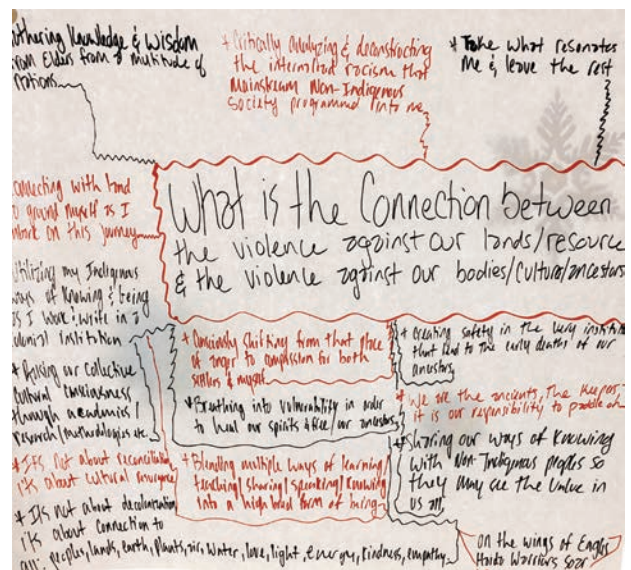 athering Knowledge & Wisdom
rom Elders from a multitude of
Nations
* Critically analyzing & deconstructing
the internalized racism that
Mainstream Non-Indigenous
Society programmed into me
* Take what resonates
me & leave the rest
onnecting with land
to ground myself as I
embark on this journey
What is the Connection between
the violence against our lands/resource
& the violence against our bodies/culture/ancestors
Utilizing my Indigenous
ways of knowing & being
as I work & write in a
colonial institution
* Raising our collective
Cultural consciousness
through academics/
research/methodologies etc.
* It's not about reconciliation
it's about cultural
* It's not about decolonization
it's about connection to
all: peoples, lands, earth, plants, air, water, love, light, energy, kindness, empathy
* Consciously shifting from that place
of anger to compassion for both
settlers & myself
* Breathing into vulnerability in order
to heal our spirits & free our ancestors
* Blending multiple ways of learning/
teaching/sharing/speaking/knowing
into a highbred form of being
* Creating safety in the very institut
that lead to the early deaths of our
ancestors
* We are the ancients, the keepers,
it is our responsibility to paddle on
* Sharing our ways of knowing
with Non-Indigenous peoples so
they may see the value in
us all,
on the wings of Eagles
Haida Warriors soar